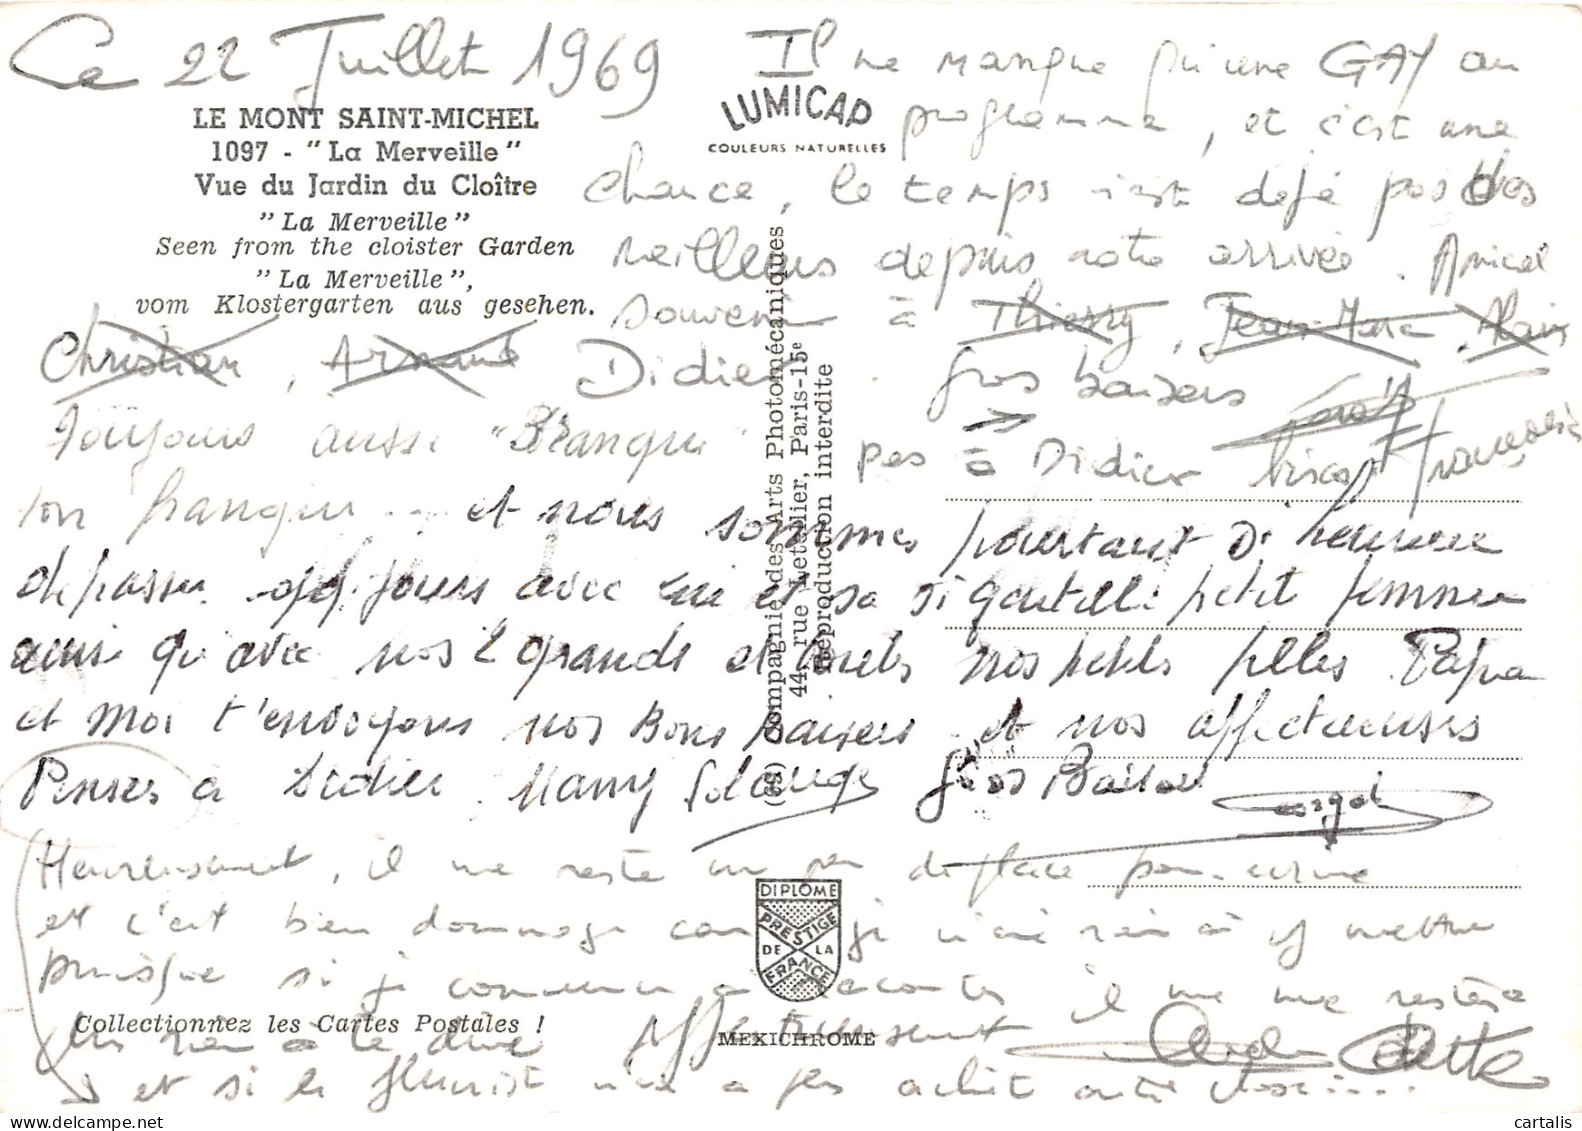 Ce 22 Juillet 1969
LE MONT SAINT-MICHEL
1097 - "La Merveille"
Vue du Jardin du Cloître
"La Merveille"
Seen from the cloister Garden
"La Merveille",
vom Klostergarten aus gesehen.
LUMICAP
COULEURS NATURELLES
Il ne manque qu'une GAY au
programme, et c'est une
chance, le temps n'est déjà pas des
meilleurs depuis notre arrivée. Amical
souvenir à Thierry, Jean-Marc, Alain
Christian, Arnaud Didier. gros baisers
pas à Didier
Françoise
Toujours aussi "Branque"
ton frangin... et nous sommes pourtant si heureux
de passer qq. jours avec lui et sa si gentille petite femme
ainsi qu'avec nos 2 grands et nos petites filles Papa
et Moi t'envoyons nos Bons baisers et nos affectueuses
Pensées à Didier. Mamy Solange Gros Baisers
Heureusement, il me reste un peu de place pour écrire
et c'est bien dommage car je n'ai rien à y mettre
puisque si je commence à raconter il ne me restera
plus rien à te dire Affectueusement
et si le fleurist n'a pas acheté autre chose.....
Compagnie des Arts Photomécaniques
44, rue Letellier, Paris-15e
Reproduction interdite
DIPLOME
PRESTIGE
DE LA
FRANCE
Collectionnez les Cartes Postales !
MEXICHROME
cartalis